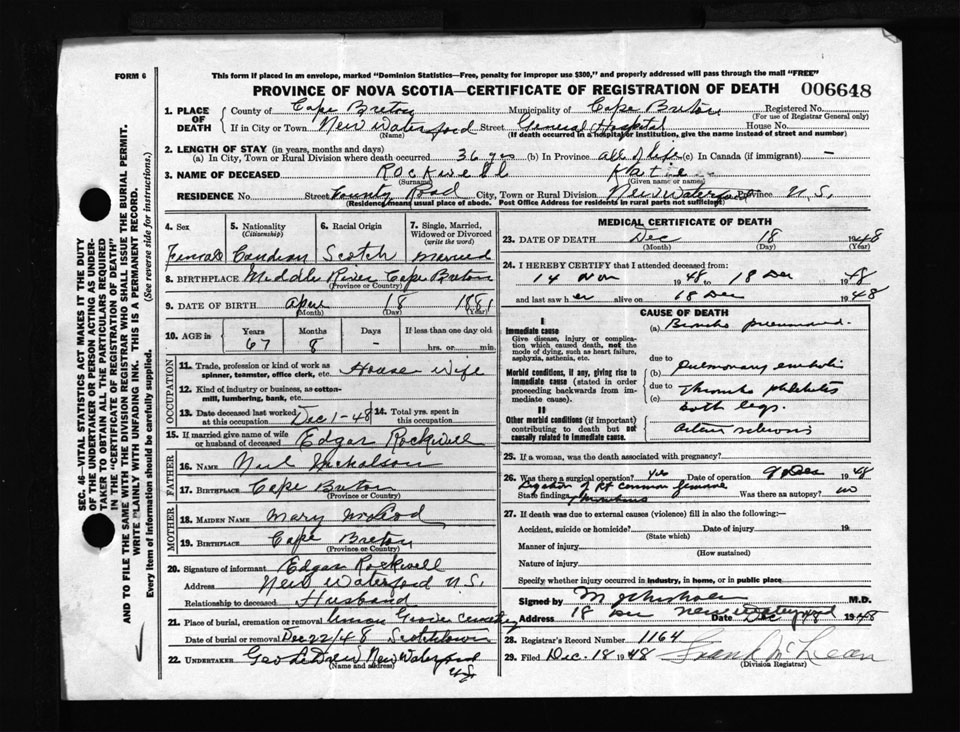 FORM 6
This form if placed in an envelope, marked "Dominion Statistics—Free, penalty for improper use $300," and properly addressed will pass through the mail "FREE"
PROVINCE OF NOVA SCOTIA—CERTIFICATE OF REGISTRATION OF DEATH 006648
1. PLACE OF DEATH County of Cape Breton Municipality of Cape Breton Registered No.
(For use of Registrar General only)
If in City or Town New Waterford Street General Hospital House No.
(Name) (If death occurred in a hospital or institution, give the name instead of street and number)
2. LENGTH OF STAY (in years, months and days)
(a) In City, Town or Rural Division where death occurred 36 yrs (b) In Province all of life (c) In Canada (if immigrant) —
3. NAME OF DECEASED Rockwell Katie
(Surname) (Given name or names)
RESIDENCE No. Street County Road City, Town or Rural Division New Waterford Province N.S.
(Residence means usual place of abode. Post Office Address for residents in rural parts not sufficient)
4. Sex 5. Nationality (Citizenship) 6. Racial Origin 7. Single, Married, Widowed or Divorced (write the word)
Female Canadian Scotch Married
8. BIRTHPLACE Middle River Cape Breton
(Province or Country)
9. DATE OF BIRTH April 18 1881
(Month) (Day) (Year)
10. AGE is Years Months Days If less than one day old
67 8 - hrs. or min.
OCCUPATION
11. Trade, profession or kind of work as spinner, teamster, office clerk, etc. House Wife
12. Kind of industry or business, as cotton-mill, lumbering, bank, etc.
13. Date deceased last worked at this occupation Dec 1-48 14. Total yrs. spent in this occupation
15. If married give name of wife or husband of deceased Edgar Rockwell
FATHER
16. Name Neil Nicholson
17. Birthplace Cape Breton
(Province or Country)
MOTHER
18. Maiden Name Mary McLeod
19. Birthplace Cape Breton
(Province or Country)
20. Signature of informant Edgar Rockwell
Address New Waterford N.S.
Relationship to deceased Husband
21. Place of burial, cremation or removal Union Grove Cemetery
Date of burial or removal Dec 22/48 Scotchtown
22. UNDERTAKER Geo LeDrew New Waterford
N.S.
MEDICAL CERTIFICATE OF DEATH
23. DATE OF DEATH Dec 18 1948
(Month) (Day) (Year)
24. I HEREBY CERTIFY that I attended deceased from:
14 Nov 1948 18 Dec 1948
and last saw her alive on 18 Dec 1948
CAUSE OF DEATH
I
Immediate cause
Give disease, injury or complication which caused death, not the mode of dying, such as heart failure, asphyxia, asthenia, etc.
(a) Broncho pneumonia.
due to
Morbid conditions, if any, giving rise to immediate cause (stated in order proceeding backwards from immediate cause).
(b) Pulmonary emboli
due to
(c) Thrombo phlebitis
both legs.
II
Other morbid conditions (if important) contributing to death but not causally related to immediate cause.
Arterio sclerosis
25. If a woman, was the death associated with pregnancy?
26. Was there a surgical operation? yes Date of operation 9 Dec 1948
State findings Ligation of Rt common femoral
Was there an autopsy? no
27. If death was due to external causes (violence) fill in also the following:—
Accident, suicide or homicide? Date of injury 19
(State which)
Manner of injury
(How sustained)
Nature of injury
Specify whether injury occurred in industry, in home, or in public place
Signed by M.D.
Address 18 Dec New Waterford Date Dec 1948
28. Registrar's Record Number 1164
29. Filed Dec. 18 1948 Frank McLean
(Division Registrar)
SEC. 46—VITAL STATISTICS ACT MAKES IT THE DUTY
OF THE UNDERTAKER OR PERSON ACTING AS UNDER-
TAKER TO OBTAIN ALL THE PARTICULARS REQUIRED
IN THE "CERTIFICATE OF REGISTRATION OF DEATH"
AND TO FILE THE SAME WITH THE DIVISION REGISTRAR WHO SHALL ISSUE THE BURIAL PERMIT.
WRITE PLAINLY WITH UNFADING INK. THIS IS A PERMANENT RECORD.
Every item of information should be carefully supplied. (See reverse side for instructions.)